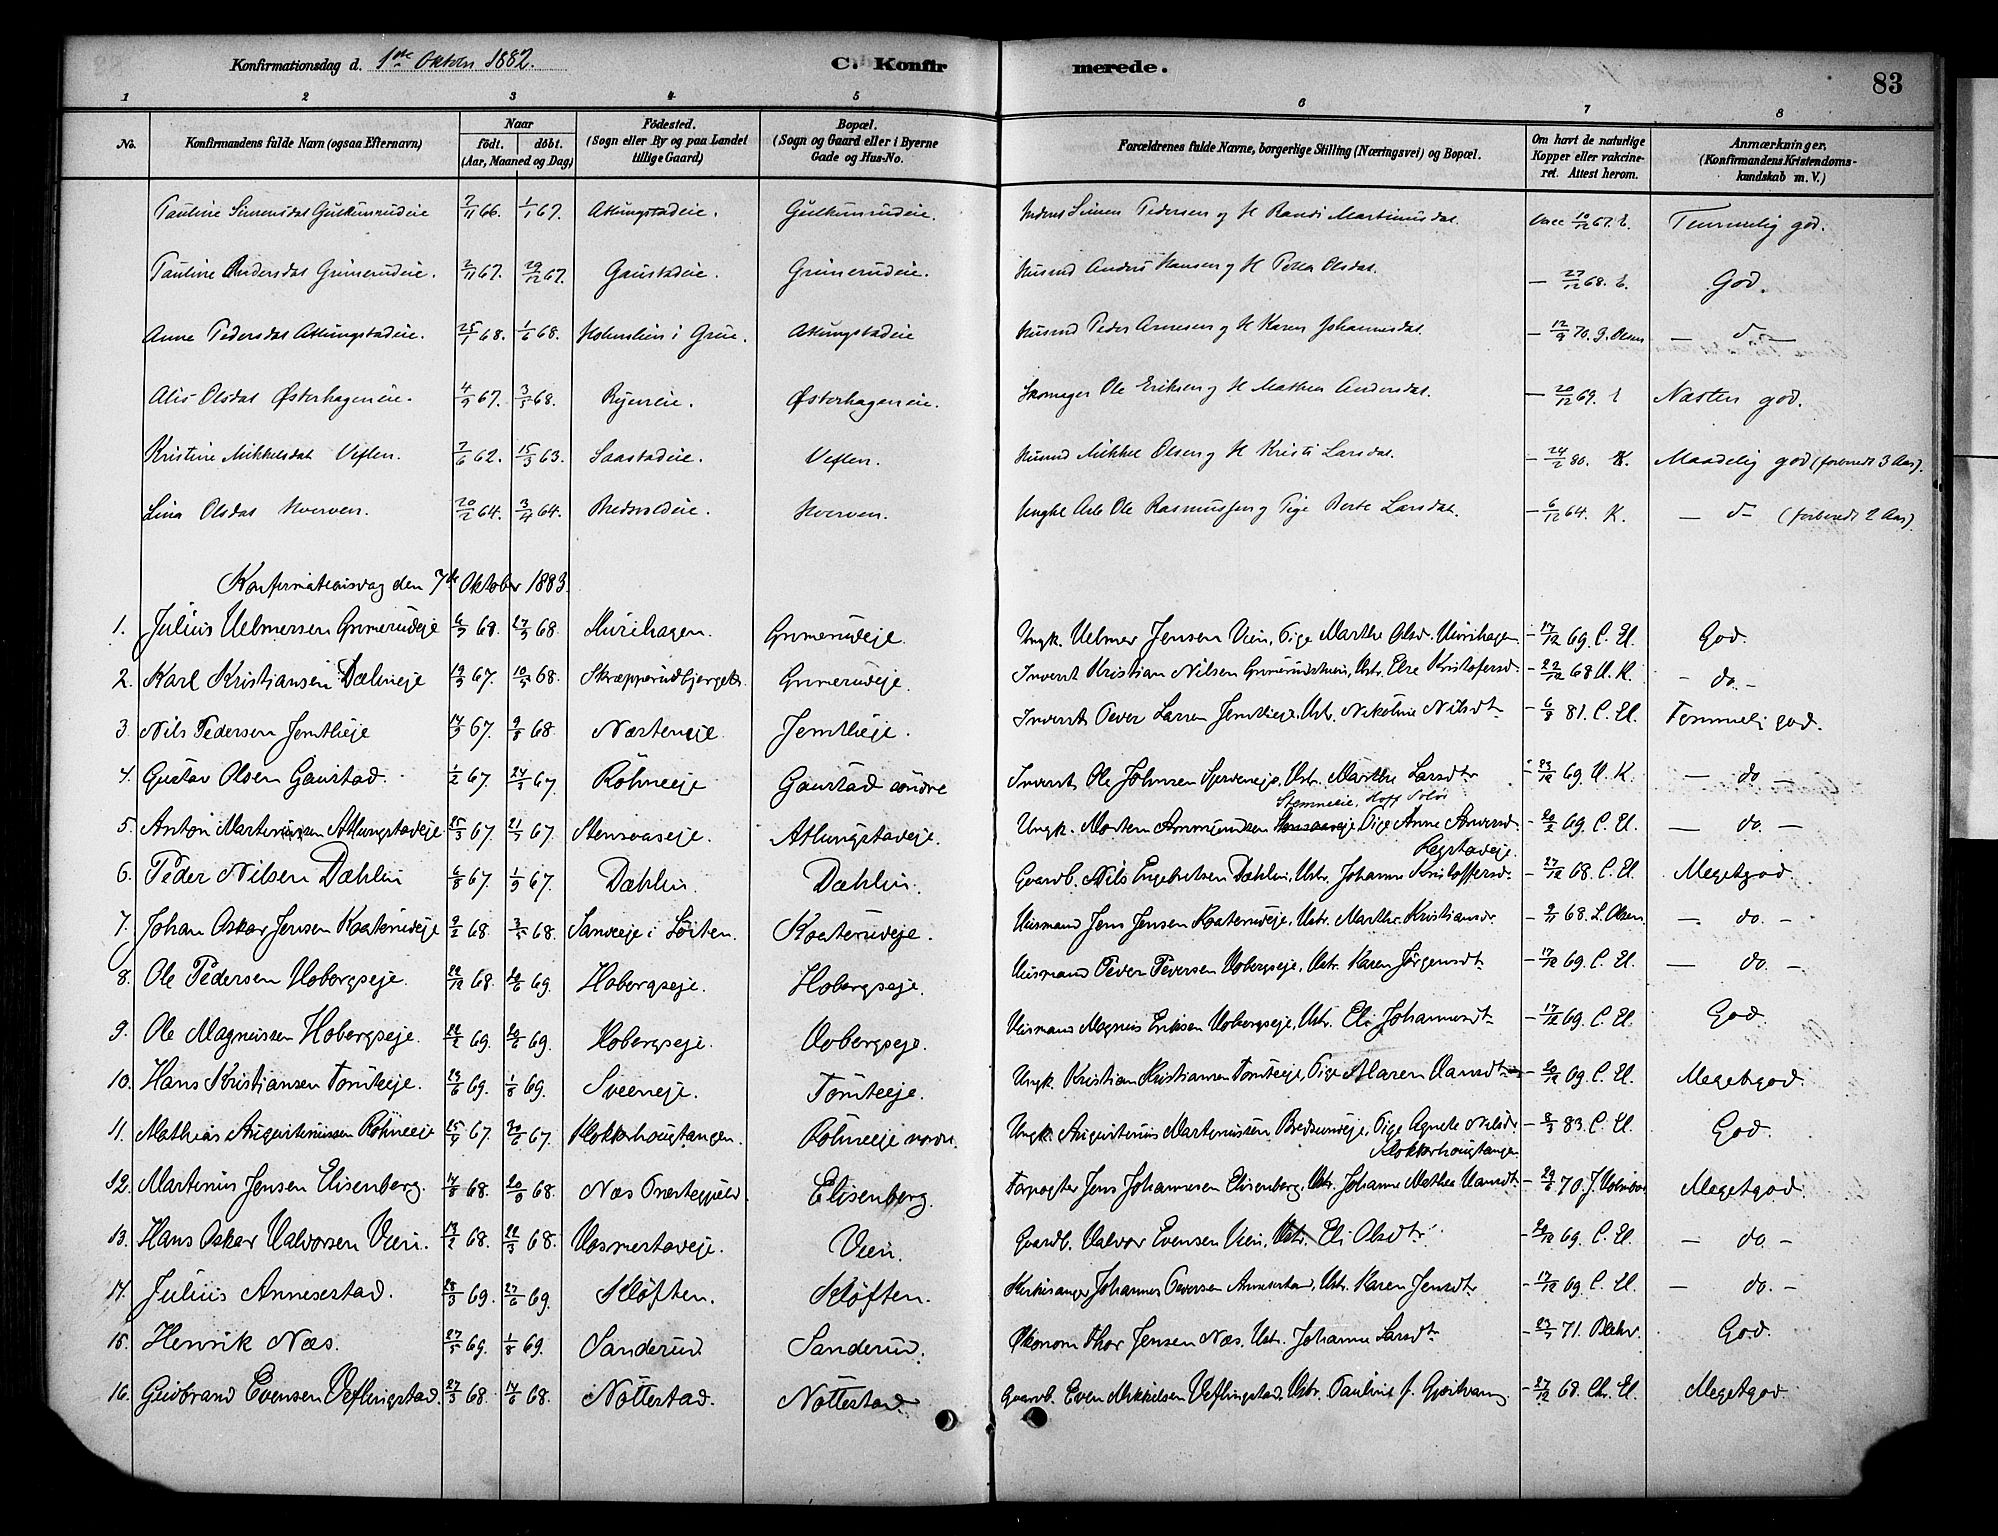 Konfirmationsdag d. 1ste Oktober 1882.
C. Konfirmerede.
83
1 2 3 4 5 6 7 8
No. Konfirmandens fulde Navn (ogsaa Efternavn) Naar født. døbt. (Aar, Maaned og Dag) Fødested. (Sogn eller By og paa Landet tillige Gaard) Bopæl. (Sogn og Gaard eller i Byerne Gade og Hus-No. Forældrenes fulde Navne, borgerlige Stilling (Næringsvei) og Bopæl. Om havt de naturlige Kopper eller vakcineret. Attest herom. Anmærkninger. (Konfirmandens Kristendomskundskab m. V.)
Pauline Simensdat Gulkunrudeie 7/11 66. 1/1 67. Atlungstadeie. Gulkunrudeie. Simen Pedersen og H Randi Martinusdat. Vacc 10/12 67. Temmelig god.
Pauline Andersdat Grimerudeie. 2/11 67. 29/12 67. Gaustadeie. Grimerudeie. Husmd Anders Hansen og H Petra Olsdat. — 27/12 68. God.
Anne Pedersdat Atlungstadeie 25/1 68. 1/6 68. i Grue. Atlungstadeie Husmd Peder Arnesen og H Karen Johannesdat. — 12/9 70. G. Olsen — d—
Alis Olsdat Østerhageneie. 4/9 67. 3/5 68. Ryeneie. Østerhageneie. Skomager Ole Eriksen og H Mathea Andersdat. — 20/12 69. Næsten god.
Kristine Mikkelsdat Veflen. 7/6 62. 15/3 63. Saastadeie. Veflen. Husmd Mikkel Olsen og H Kristi Larsdat. — 24/2 80. K. Maadelig god (forberedt 3 Aar).
Lina Olsdat Hverven. 20/2 64. 3/4 64. Bredvoldeie. Hverven. Ungkl Arb Ole Rasmussen og Pige Berte Larsdat. — 6/12 64. K. — d— (forberedt 2 Aar)
Konfirmationsdag den 7de Oktober 1883.
1. Julius Helmersen Grimerudeje 6/7 68. 27/9 68. Hvithagen. Grimerudeje. Ungk. Helmer Jensen Vien, Pige Marthe Olsd. — 17/12 69. C. El. God.
2. Karl Kristiansen Dæhlineje 19/9 67. 10/5 68. Grimerudeje. Inderst Kristian Nilsen, Hstr. Else Kristofersd. — 22/12 68 H. K. — do. —
3. Nils Pedersen Jemtlieje 14/9 67. 9/8 68. Næsteneje. Jemtlieje. Inderst Peder Larsen Jemtlieje, Hstr. Nikoline Nilsdt. — 6/8 81. C. El. Temmelig god.
4. Gustav Olsen Gaustad. 1/2 67. 24/3 67. Röhneeje Gaustad söndre Inderst Ole Johnsen, Hstr. Marthe Larsdtr — 23/12 69. H. K. — do —
5. Anton Martiniussen Atlungstadeje 25/3 67. 21/7 67. Stensaaseje. Atlungstadeje. Ungk. Morten Ammundsen Stemmeeie, Hoff Solör Pige Anne Andersd. Regstadeje. — 20/2 69. C. El. — do. —
6. Peder Nilsen Dæhlin 6/8 67. 1/9 67. Dæhlin. Dæhlin. Gaardb. Nils Engebretsen Dæhlin, Hstr. Johanne Kristoffersd. — 27/12 68. C. El. Megetgod.
7. Johan Oskar Jensen Kaaterudeje 9/2 68. 3/5 68. Sandeeje i Löiten. Kaaterudeje. Husmand Jens Jensen Kaaterudeje, Hstr. Marthe Kristiansdr. — 9/11 68. L. Olsen — do. —
8. Ole Pedersen Hobergseje. 22/12 68. 20/6 69. Hobergseje. Hobergseje. Husmand Peder Pedersen Hobergseje, Hstr. Karen Jörgensdt. — 17/12 69. C. El. — do. —
9. Ole Magnussen Hobergseje. 22/2 69. 20/6 69. Hobergseje. Hobergseje. Husmand Magnus Eriksen Hobergseje, Hstr. Eli Johannesdt. — 17/12 69. C. El. God.
10. Hans Kristiansen Tomteeje. 23/6 69. 1/8 69. Sveeneje. Tomteeje. Ungk. Kristian Kristiansen Tomteeje, Pige Maren Hansdt — 20/12 69. C. El. Megetgod.
11. Mathias Augustinussen Röhneeje 25/4 67. 20/6 67. Klokkerhougtangen. Röhneeje nordr. Ungk. Augustinus Martinussen, Pige Agnete Nilsdr Klokkerhougtangen — 8/3 83. C. El. God.
12. Martinius Jensen Elisenberg. 14/8 68. 20/9 68. Næs Elisenberg. Forpagter Jens Johannesen Elisenberg, Hstr. Johanne Mathea Hansdt. — 29/6 70. J. Megetgod.
13. Hans Oskar Halvorsen Vien. 13/2 68. 22/3 68. Hosmestadeje. Vien. Gaardb. Halvor Evensen Vien, Hstr. Eli Olsdtr. — 20/12 69. C. El. — do. —
14. Julius Annexstad. 28/3 69. 27/6 69. Klöften. Klöften. Kirkesanger Johannes Pedersen Annexstad, Hstr. Karen Jensdtr — 17/12 69. C. El. — do. —
15. Henrik Næs. 27/5 69. 1/8 69. Sanderud. Sanderud. Ökonom Thor Jensen Næs, Hstr. Johanne Larsdt. — 23/7 71. God.
16. Gudbrand Evensen Veflingstad. 27/3 68. 14/6 68. Nöttestad. Nöttestad. Gaardb. Even Mikkelsen Veflingstad, Hstr. Pauline f. — 27/12 68. Ch. El. Megetgod.